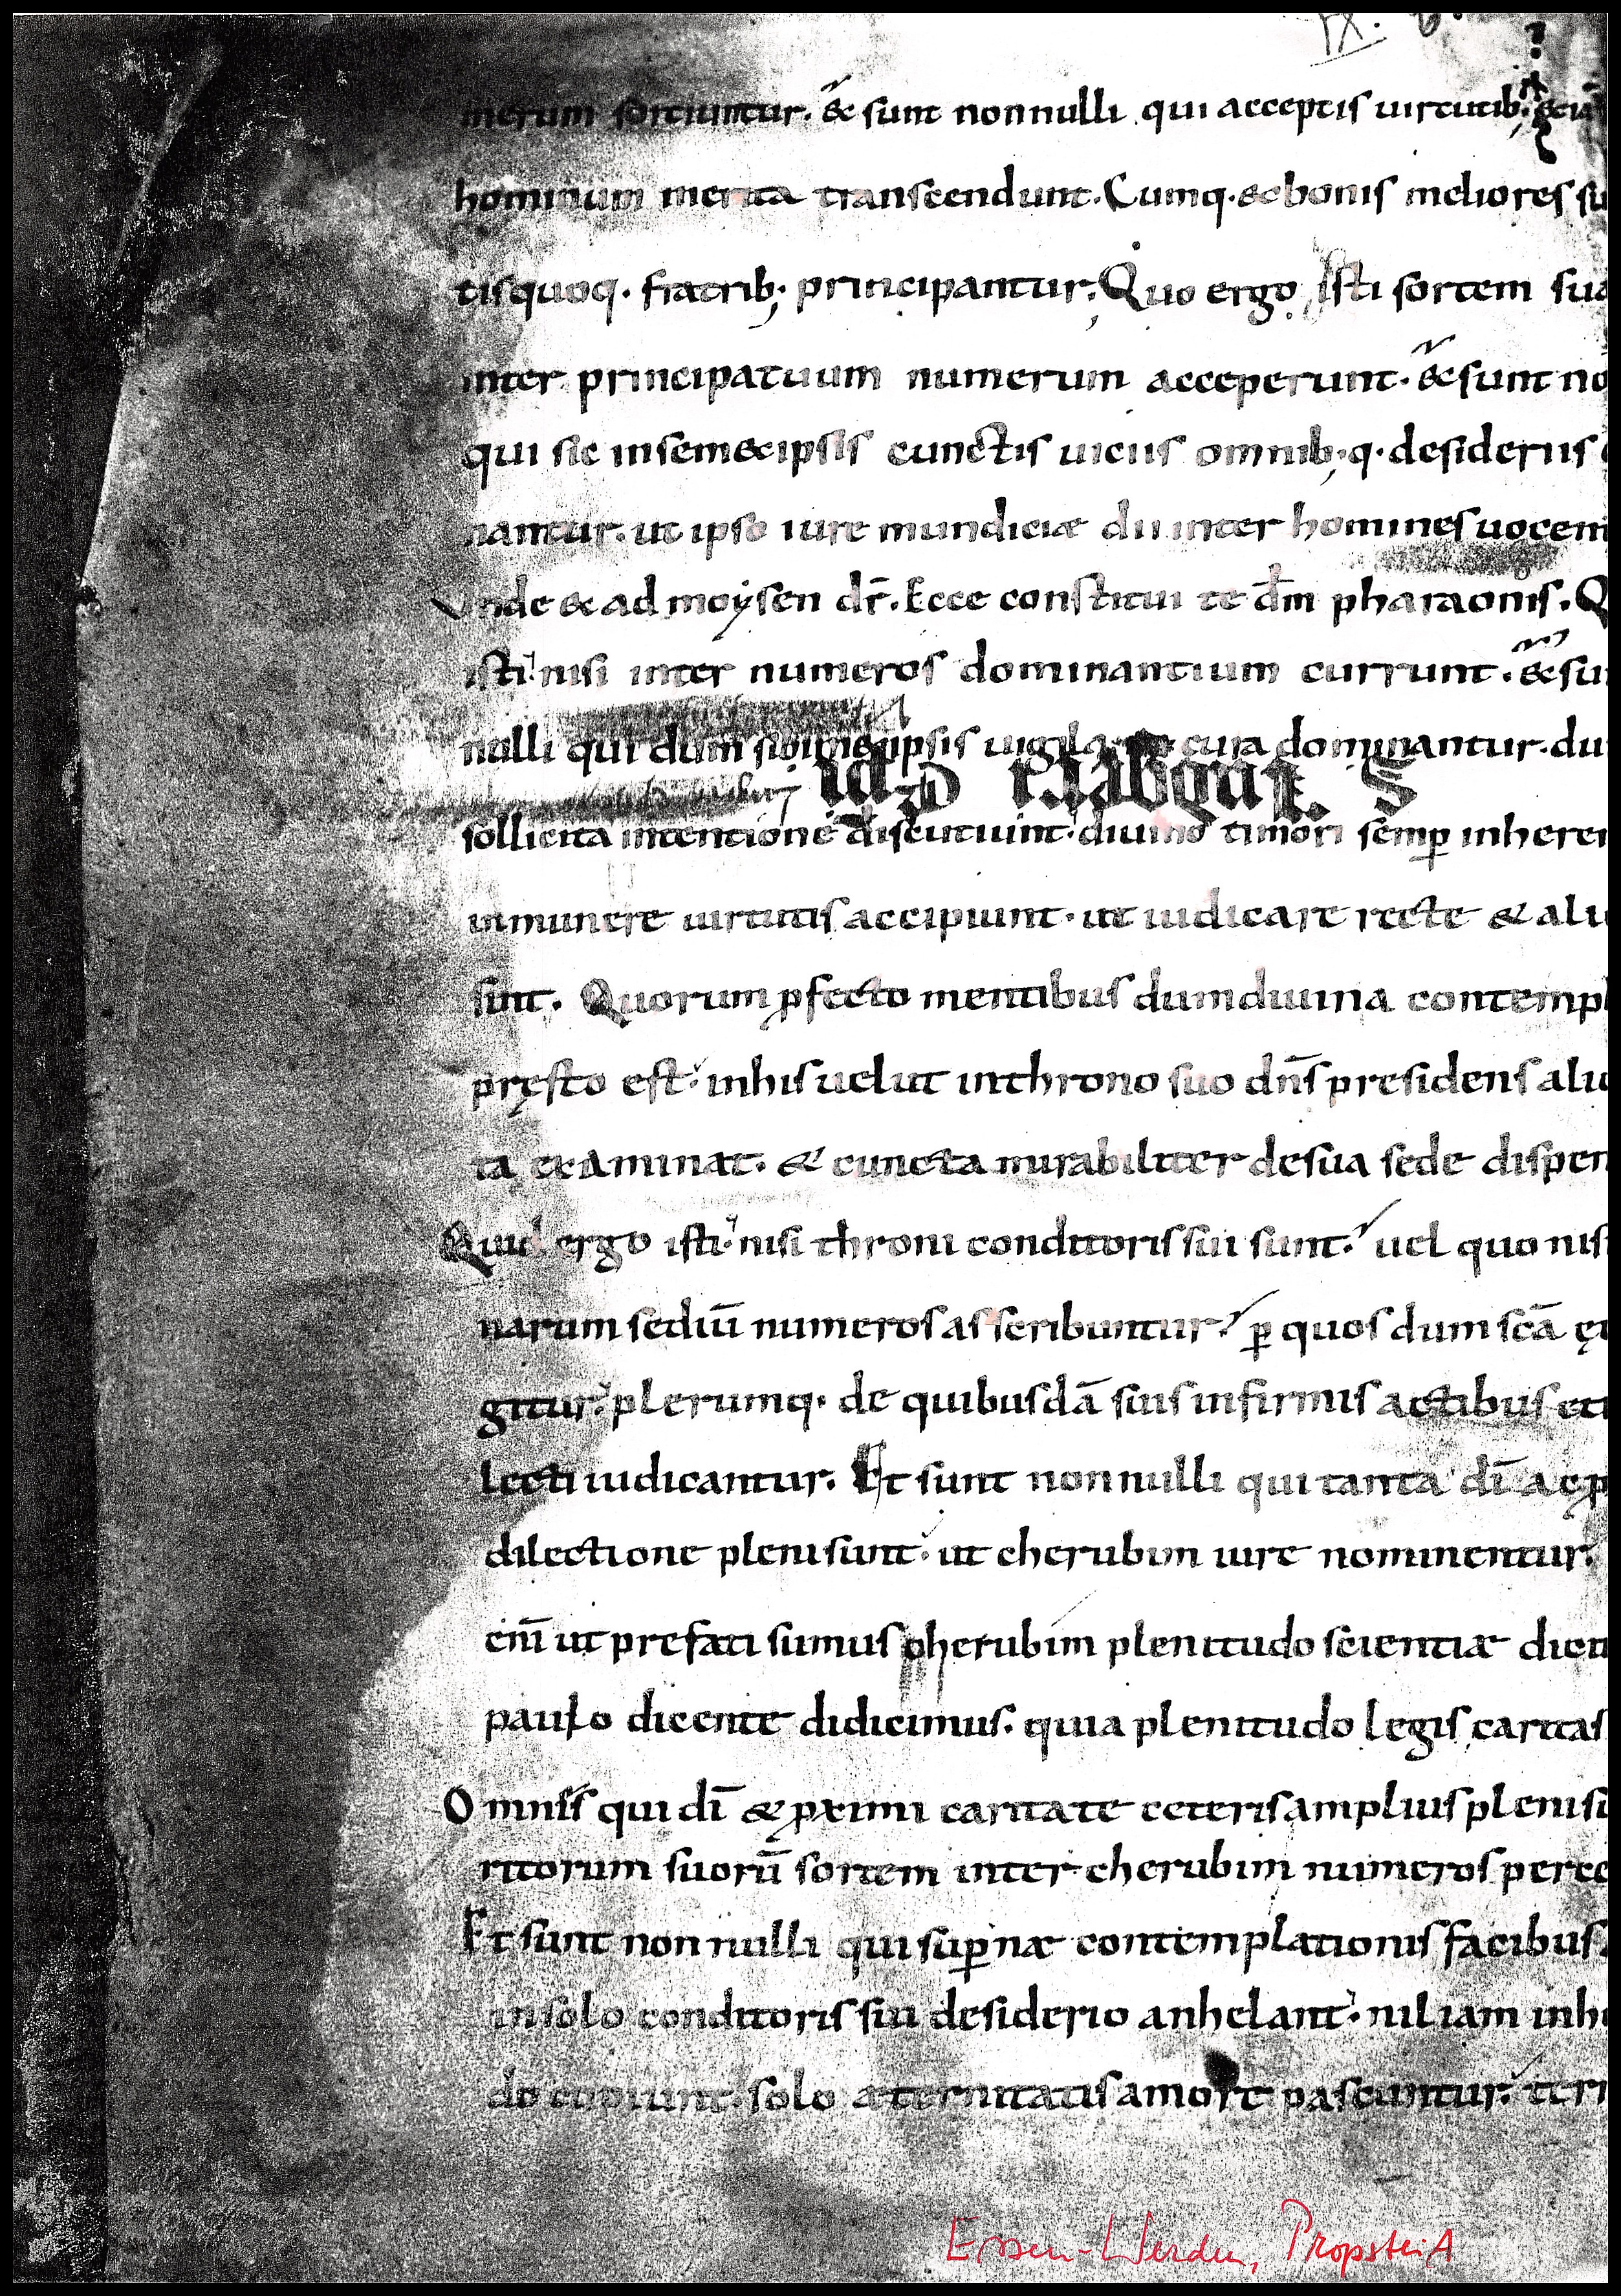 IX. 6.
merum sortiuntur. & sunt nonnulli qui acceptis uirtutib;
hominum merita transcendunt. Cumq. & bonis meliores su
tisquoq. fratrib; principantur; Quo ergo Isti sortem sua
inter principatuum numerum acceperunt. & sunt nō
qui sic insem&ipsis cunctis uiciis omnib;q. desideriis
nantur. ut ipso iure mundiciæ dii inter homines uocen
Unde & ad moysen dr̄. Ecce constitui te dm̄ pharaonis. Q
isti nisi inter numeros dominantium currunt. & sun
nulli qui dum cura dominantur. du
sollicita intentione discutiunt. diuino timori semp̄ inheren
inmunere uirtutis accipiunt. ut iudicare recte & ali
sint. Quorum pfecto mentibus dum diuina contempl
pręsto est. inhis uelut inthrono suo dn̄s presidens ali
ta examinat. & cuncta mirabiliter desua sede dispen
Quid ergo isti nisi throni conditoris sui sunt. uel quo nisi
narum sediū numeros asscribuntur. p̄ quos dum scā ęc
gitur. plerumq. de quibusdā suis infirmis actibus eti
lecti iudicantur. Et sunt nonnulli qui tanta dī ac p
dilectione pleni sunt. ut cherubim iure nominentur.
eni̅ ut prefati sumus cherubim plenitudo scientiæ dicit
paulo dicente didicimus. quia plenitudo legis caritas
Omnis qui dī & pximi caritate ceteris amplius pleni s
ritorum suorū sortem inter cherubim numeros perce
Et sunt nonnulli qui sup̄næ contemplationis facibus
insolo conditoris sui desiderio anhelant. nil iam inh
do cupiunt. solo æternitatis amore pascuntur. terr
Essen-Werden, Propstei A